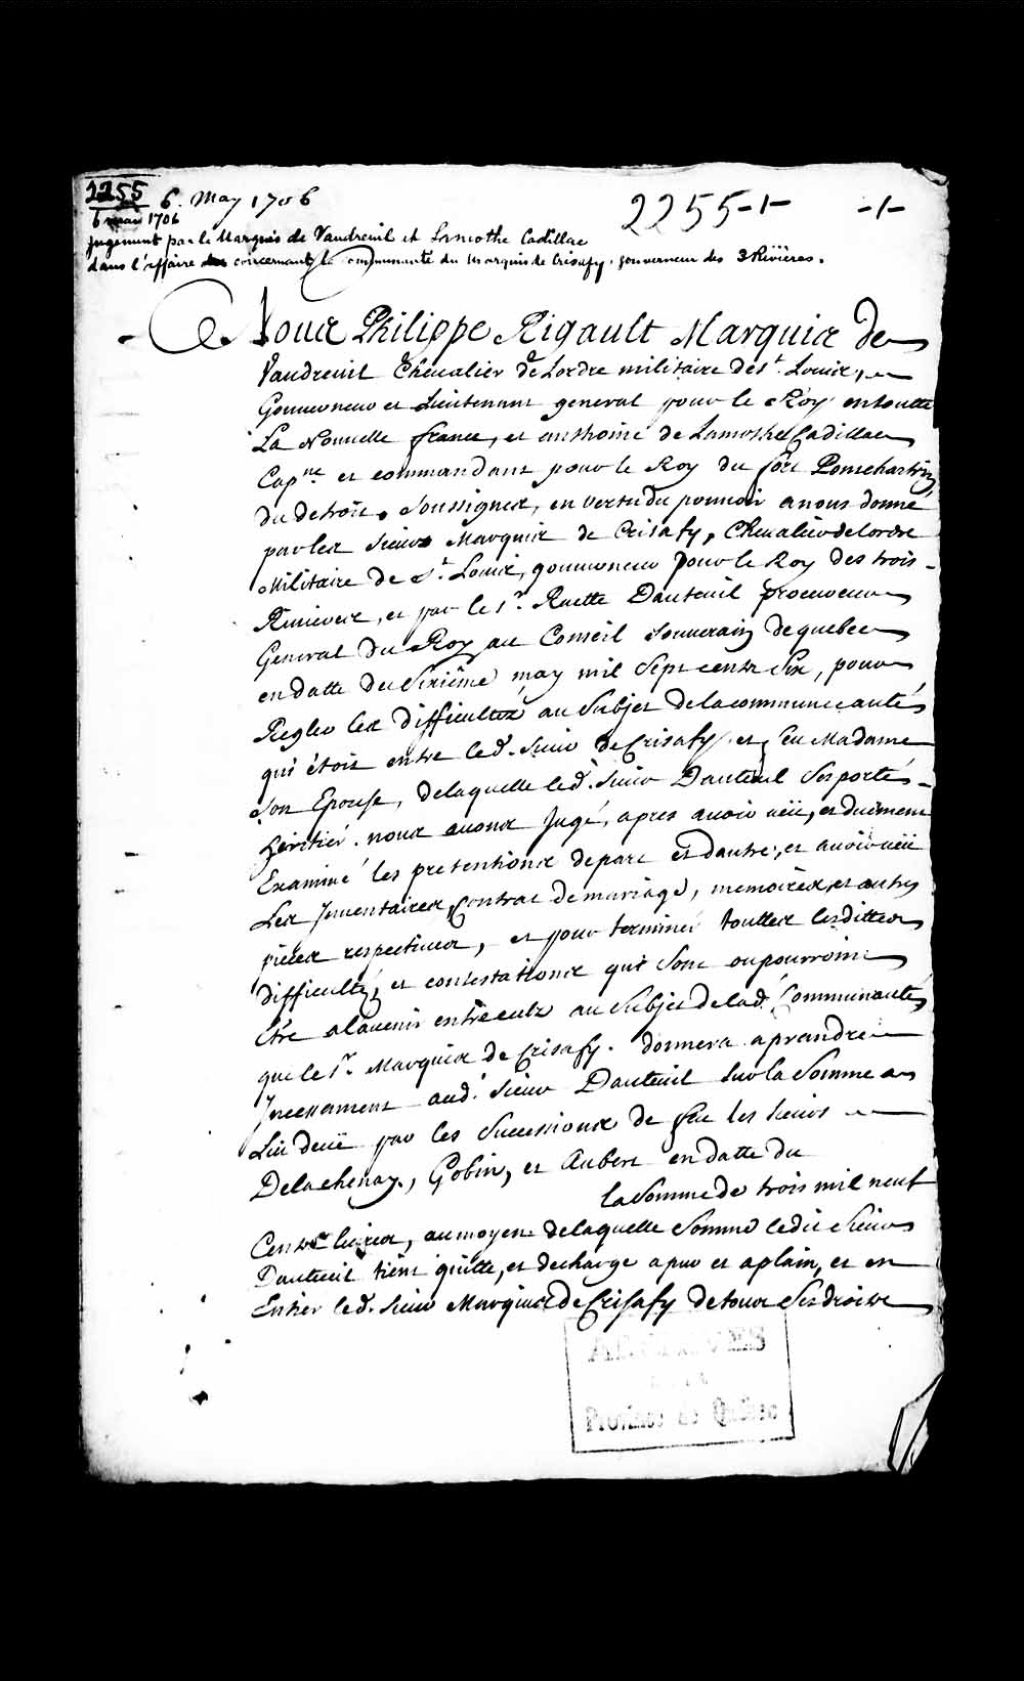 2255 6. May 1706
2255-1- -1-
6 mai 1706
Jugement par le Marquis de Vaudreuil et Lamothe Cadillac
dans l'affaire concernant la communauté du Marquis de Crisafy, gouverneur des 3 Rivières.
Nous Philippe Rigault Marquis de
Vaudreuil Chevalier de Lordre militaire de st. Louis,
Gouverneur et Lieutenant general pour le Roy en toutte
La Nouvelle france, et anthoine de Lamothe Cadillac
Capne. et commandant pour le Roy du fort Pontchartrin
du detroit, Soussignez, en vertu du pouvoir a nous donné
par les sieurs Marquis de Crisafy, Chevalier de lordre
Militaire de st. Louis, gouverneur pour le Roy des trois
Rivieres, et par le sr. Ruette Dauteuil procureur
General du Roy au Conseil Souverain de quebec
en datte du Sixiême may mil Sept cents Six, pour
Regler les difficultéz au Subjet de la communeauté
qui étoit entre led. Sieur de Crisafy et feu Madame
Son Epouse, de laquelle led. Sieur Dauteuil Ses porté
heritier. nous avons Jugé, apres avoir veü, et duement
Examiné les pretentions de part et dautre, et avoir veü
Les Inventaires, Contrat de mariage, memoires, et autres
pieces respectives, et pour terminer touttes lesdittes
difficultéz, et contestations qui Sont ou pourroint
Etre alavenir entre eulx au Subjet de lad. Communauté
que le Sr. Marquis de Crisafy. donnera a prandre
Incessament aud. Sieur Dauteuil Sur la Somme a
Lui deüe par les Successions de feu les Sieurs
Delachenay, Gobin, et Aubert en datte du
la Somme de trois mil neuf
Cents livres, au moyen de laquelle Somme ledit Sieur
Dauteuil tient quitte, et decharge a pur et a plain, et en
Entier led. Sieur Marquis de Crisafy de tous Ses droits
Province de Québec